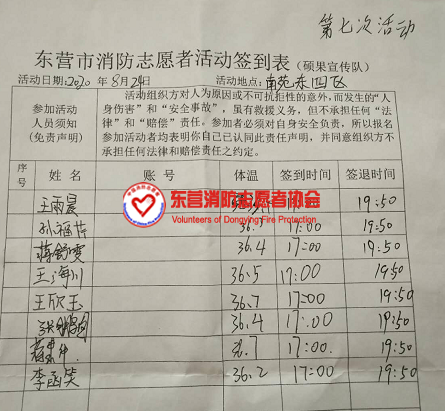 第七次活动
东营市消防志愿者活动签到表（硕果宣传队）
活动日期：2020 年 8月24日 活动地点：南苑东四区
参加活动人员须知（免责声明）
活动组织方对人为原因或不可抗拒性的意外，而发生的“人
身伤害”和“安全事故”，虽有救援义务，但不承担任何“法
律”和“赔偿”责任。参加者必须对自身安全负责，所以报名
参加活动者均表明你自己已认同此责任声明，并同意组织方不
承担任何法律和赔偿责任之约定。
序号 姓名 账号 体温 签到时间 签退时间
东营消防志愿者协会
Volunteers of Dongying Fire Protection
王雨晨 19:50
17:00 19:50
蒋舒雯 36.4 17:00 19:50
王海川 36.5 17:00 19:50
王欣玉 36.7 17:00 19:50
36.4 17:00 19:50
17:00 19:50
李函笑 36.2 17:00 19:50